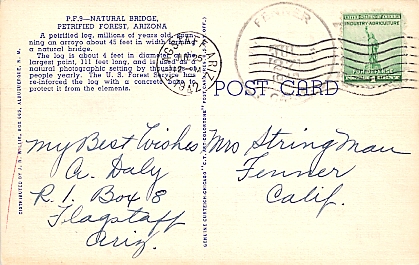 P.F.9—NATURAL BRIDGE,
PETRIFIED FOREST, ARIZONA
A petrified log, millions of years old, spanning
an arroyo about 45 feet in width forming
a natural bridge.
The log is about 4 feet in diameter at the
largest point, 111 feet long, and is used as a
natural photographic setting by thousands of
people yearly. The U. S. Forest Service has
re-inforced the log with a concrete beam to
protect it from the elements.
POST CARD
UNITED STATES OF AMERICA
INDUSTRY AGRICULTURE
FOR DEFENSE
My Best Wishes
A. Daly
R. 1. Box 8
Flagstaff
Ariz.
Mrs Stringman
Fenner
Calif.
DISTRIBUTED BY J. R. WILLIS, BOX 665, ALBUQUERQUE, N. M.
GENUINE CURTEICH-CHICAGO "C.T. ART-COLORTONE" POST CARD (REG. U. S. PAT. OFF.)